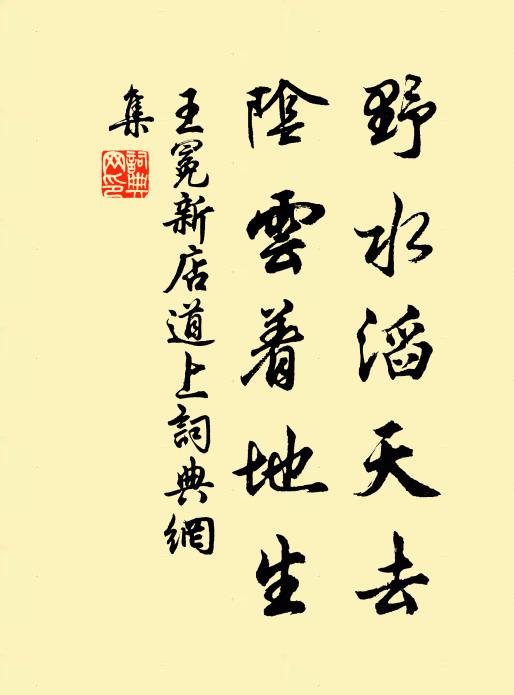 野水滔天去
陰雲着地生
王冕新店道上詞典網
集
詞典網印